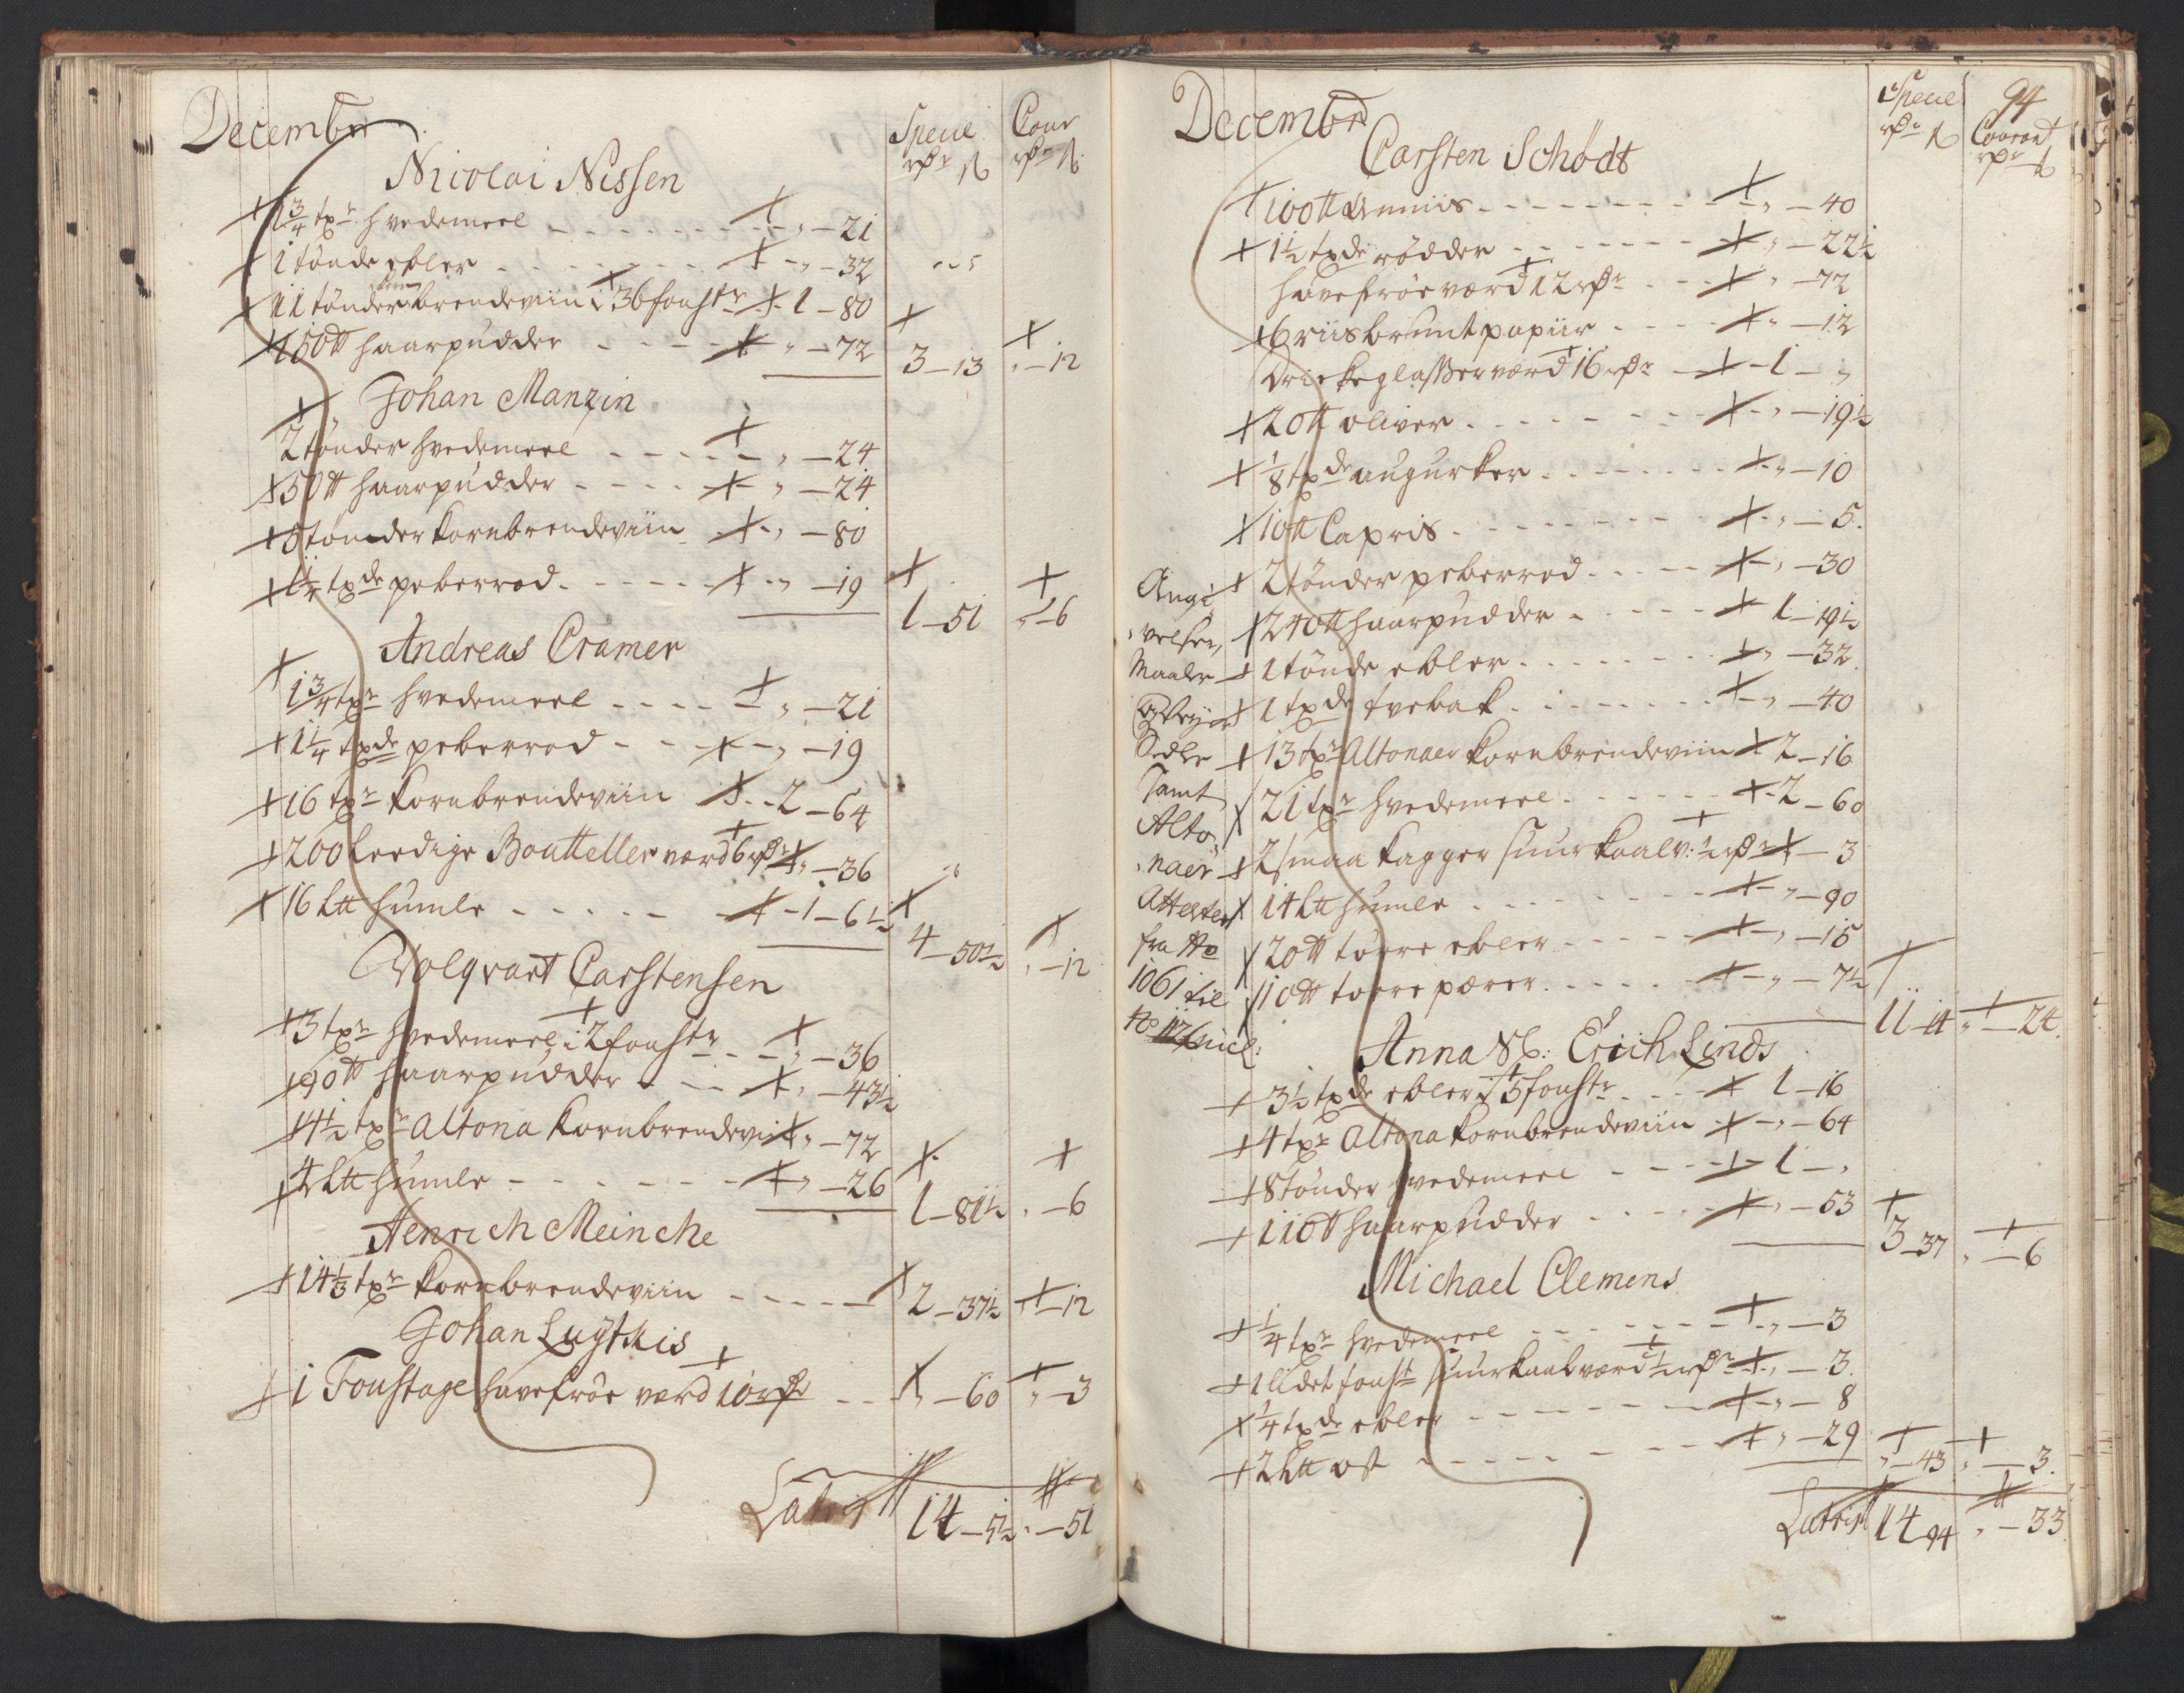 Decembr
Specie Cour
rdr ß rdr ß
Nicolai Nissen
1 3/4 tdr hvedemeel - - - " - 21
1 tønde ebler - - - " - 32
11 tønder korn brendeviin i 36 foust - 1 - 80
150 tt haarpudder - - - " - 72 3 - 13 " - 12
Johan Manzin
2 tønder hvedemeel - - - " - 24
50 tt haarpudder - - - " - 24
5 tønder kornbrendeviin - " - 80
1 1/4 tpde peberrod - - - " - 19
1 - 51 " - 6
Andreas Cramer
1 3/4 tpr hvedemeel - - - " - 21
1 1/4 tpde peberrod - - - " - 19
16 tpr kornbrendeviin - 2 - 64
200 Leedige Boutteller værd 6 rdr " - 36
16 Ltt humle - - - 1 - 6 1/2
4 - 50 1/2 " - 12
Volqvart Carstensen
3 tpr hvedemeel i 2 foustr - " - 36
90 tt haarpudder - - " - 43 1/2
4 1/2 tpr Altona kornbrendeviin " - 72
4 Ltt humle - - - " - 26
1 - 81 1/2 " - 6
Henrich Meincke
14 1/3 tpr kornbrendeviin - - - 2 - 37 1/2 " - 12
Johan Luytkis
1 Foustage havefrøe værd 10 rdr - - " - 60 " - 3
Latus 14 - 5 1/2 " - 51
Decembr
Specie 94
rdr ß Courant
rdr ß
Carsten Schødt
100 tt Annis - - - " - 40
1 1/2 tpde rødder - - - " - 22 1/2
havefrøe værd 12 rdr - - " - 72
6 riis bruunt papiir - - - " - 12
Drickeglasser værd 16 rdr - 1 - "
20 tt oliver - - - " - 19 1/2
1/8 tpde augurker - - - " - 10
10 tt Capris - - - " - 5
2 tønder peberrod - - - " - 30
240 tt haarpudder - - - 1 - 19 1/2
1 tønde ebler - - - " - 32
1 tpde tvebak - - - " - 40
13 tpr Altonaer kornbrendeviin 2 - 16
21 tpr hvedemeel - - - 2 - 60
2 smaa kagger suurkaal v: 1/2 rdr - 3
14 Ltt humle - - - " - 90
20 tt torre ebler - - - " - 15
10 tt torre pærer - - - " - 7 1/2
11 - 4 " - 24
Angi
velser,
Maaler
og Veyer
Sedler
Samt
Alto
naer
Attester
fra No
1061 til
No 1126 incl:
Anna Sl: Erich Linds
3 1/2 tpde ebler i 5 foustr - - 1 - 16
4 tpr Altona kornbrendeviin - " - 64
8 tønder hvedemeel - - - 1 - "
110 tt haarpudder - - - " - 53
3 - 37 " - 6
Michael Clemens
1/4 tpr hvedemeel - - - " - 3
1 lidet foust suurkaal værd 1/2 rdr " - 3
1/4 tpde ebler - - - " - 8
2 Ltt ost - - - " - 29 " - 43 " - 3
Latus 14 94 " - 33